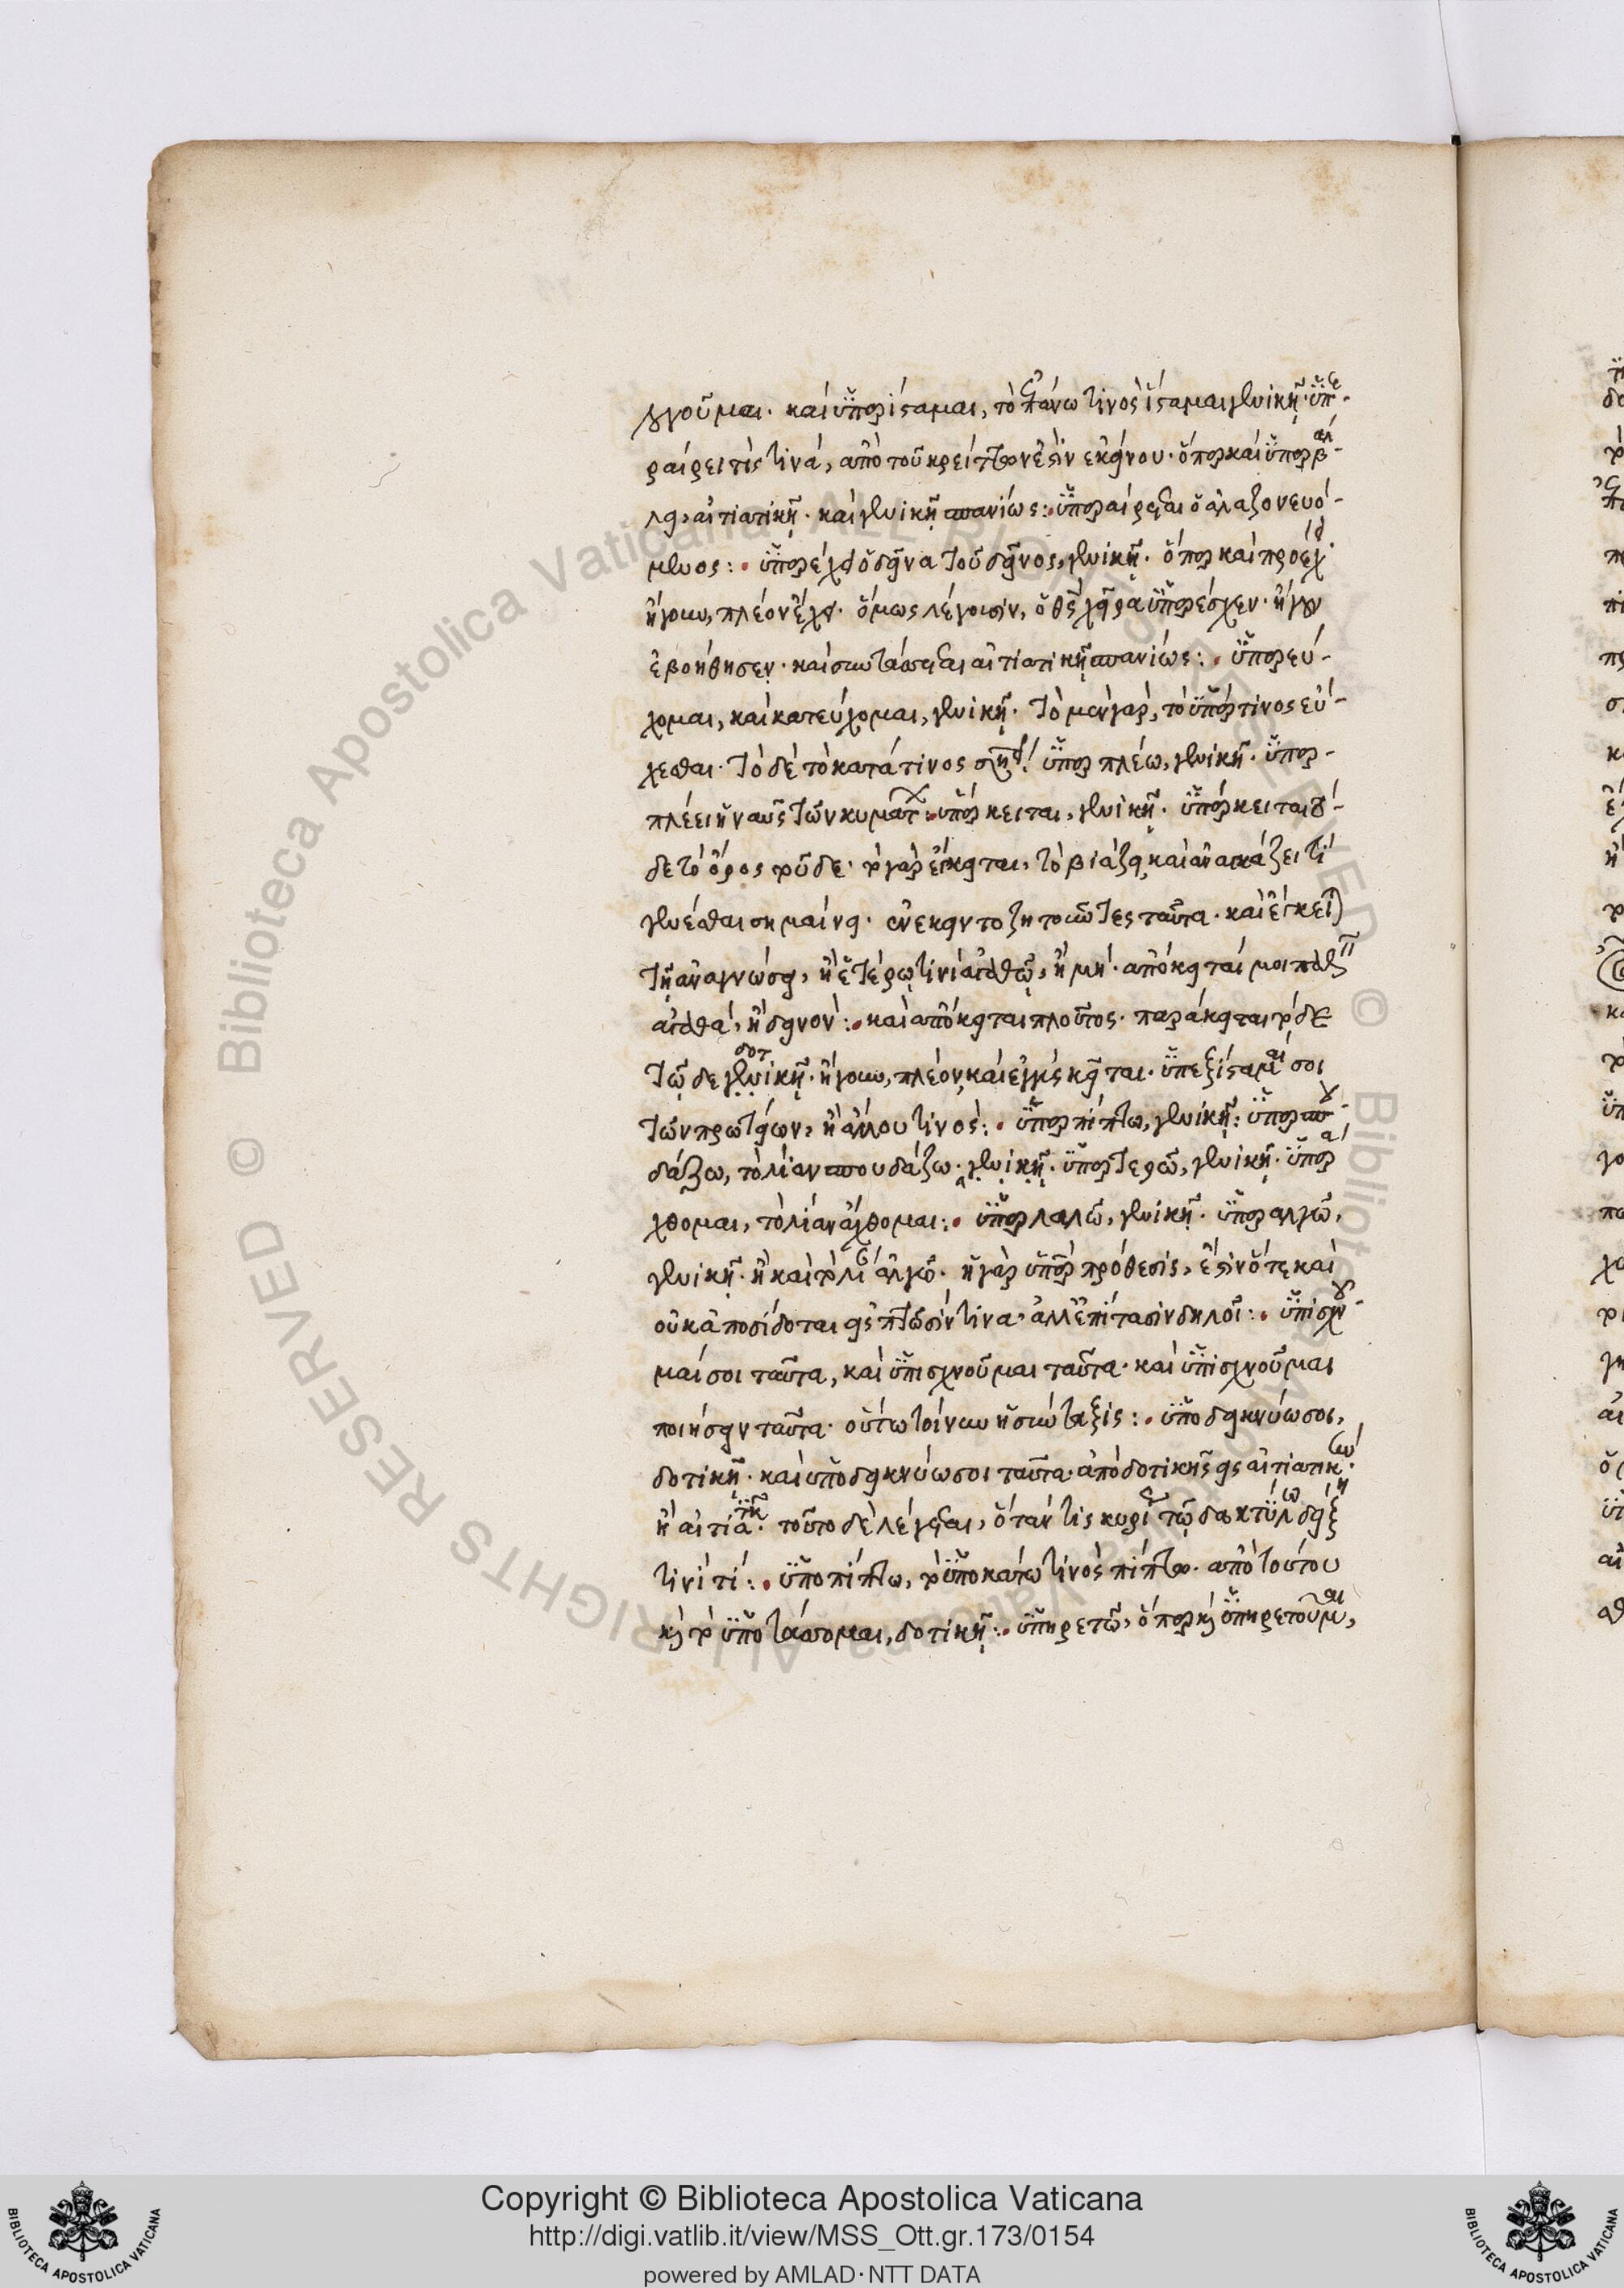 γγοῦμαι. καὶ ὑπερίσταμαι, τὸ ἐπάνω τινὸς ἵσταμαι γενικῇ. ὑπε-
ραίρει τίς τινά, ἀπὸ τοῦ κρείττων ἐστὶν ἐκείνου. ὅπερ καὶ ὑπερβάλ-
λει, αἰτιατικῇ. καὶ γενικῇ σπανίως: ὑπεραίρεται ὁ ἀλαζονευό-
μενος: ὑπερέχει ὁ δεῖνα τοῦ δεῖνος, γενικῇ. ὅπερ καὶ προέχει
ἤγουν, πλέον ἔχει. ὅμως λέγουσιν, ὁ θς χεῖρα ὑπερέσχεν. ἤγουν
ἐβοήθησεν. καὶ συντάσσεται αἰτιατικῇ σπανίως: ὑπερεύ-
χομαι, καὶ κατεύχομαι, γενικῇ. τὸ μὲν γὰρ, τὸ ὑπέρ τινος εὔ-
χεσθαι. τὸ δὲ τὸ κατά τινος ὑπερπλέω, γενικῇ. ὑπερ-
πλέει ἡ ναῦς τῶν κυμάτων: ὑπέρκειται, γενικῇ. ὑπέρκειται τό-
δε τὸ ὄρος τοῦδε. τὸ γὰρ ἔγκειται, τὸ βιάζει καὶ ἀναγκάζει τί
γενέσθαι σημαίνει. ἐνέκειντο ζητοῦντες ταῦτα. καὶ ἔγκειται
τῇ ἀναγνώσει, ἢ ἑτέρῳ τινὶ ἀγαθῷ, ἢ μή. ἀπόκειταί μοι
ἀγαθά, ἢ δεινόν: καὶ ἀπόκειται πλοῦτος. παράκειται τόδε
τῷδε γενικῇ δοτ. ἤγουν, πλέον καὶ ἐγγὺς κεῖται. ὑπεξίσταμαί σοι
τῶν πρωτείων, ἢ ἄλλου τινός: ὑπερπίπτω, γενικῇ: ὑπερσπου-
δάζω, τὸ λίαν σπουδάζω. γενικῇ. ὑπερτερῶ, γενικῇ. ὑπερά-
χθομαι, τὸ λίαν ἄχθομαι: ὑπερλαλῶ, γενικῇ. ὑπεραλγῶ,
γενικῇ. ἢ καὶ τὸ λίαν ἀλγῶ. ἡ γὰρ ὑπὲρ πρόθεσις, ἔστιν ὅτε καὶ
οὐκ ἀποδίδοται εἰς πτῶσίν τινα. ἀλλ' ἐπίτασιν δηλοῖ: ὑπισχνοῦ-
μαί σοι ταῦτα, καὶ ὑπισχνοῦμαι ταῦτα. καὶ ὑπισχνοῦμαι
ποιήσειν ταῦτα. οὕτω τοίνυν ἡ σύνταξις: ὑποδεικνύω σοι,
δοτικῇ. καὶ ὑποδεικνύω σοι ταῦτα. ἀπὸ δοτικῆς εἰς αἰτιατικήν.
ἢ αἰτιατικῇ. τοῦτο δὲ λέγεται, ὅταν τις κυρίως τῷ δακτύλῳ δείξῃ
τινί τί: ὑποπίπτω, τὸ ὑποκάτω τινὸς πίπτω. ἀπὸ τούτου
καὶ τὸ ὑποτάσσομαι, δοτικῇ: ὑπηρετῶ, ὅπερ καὶ ὑπηρετοῦμαι,
Copyright © Biblioteca Apostolica Vaticana
http://digi.vatlib.it/view/MSS_Ott.gr.173/0154
powered by AMLAD·NTT DATA